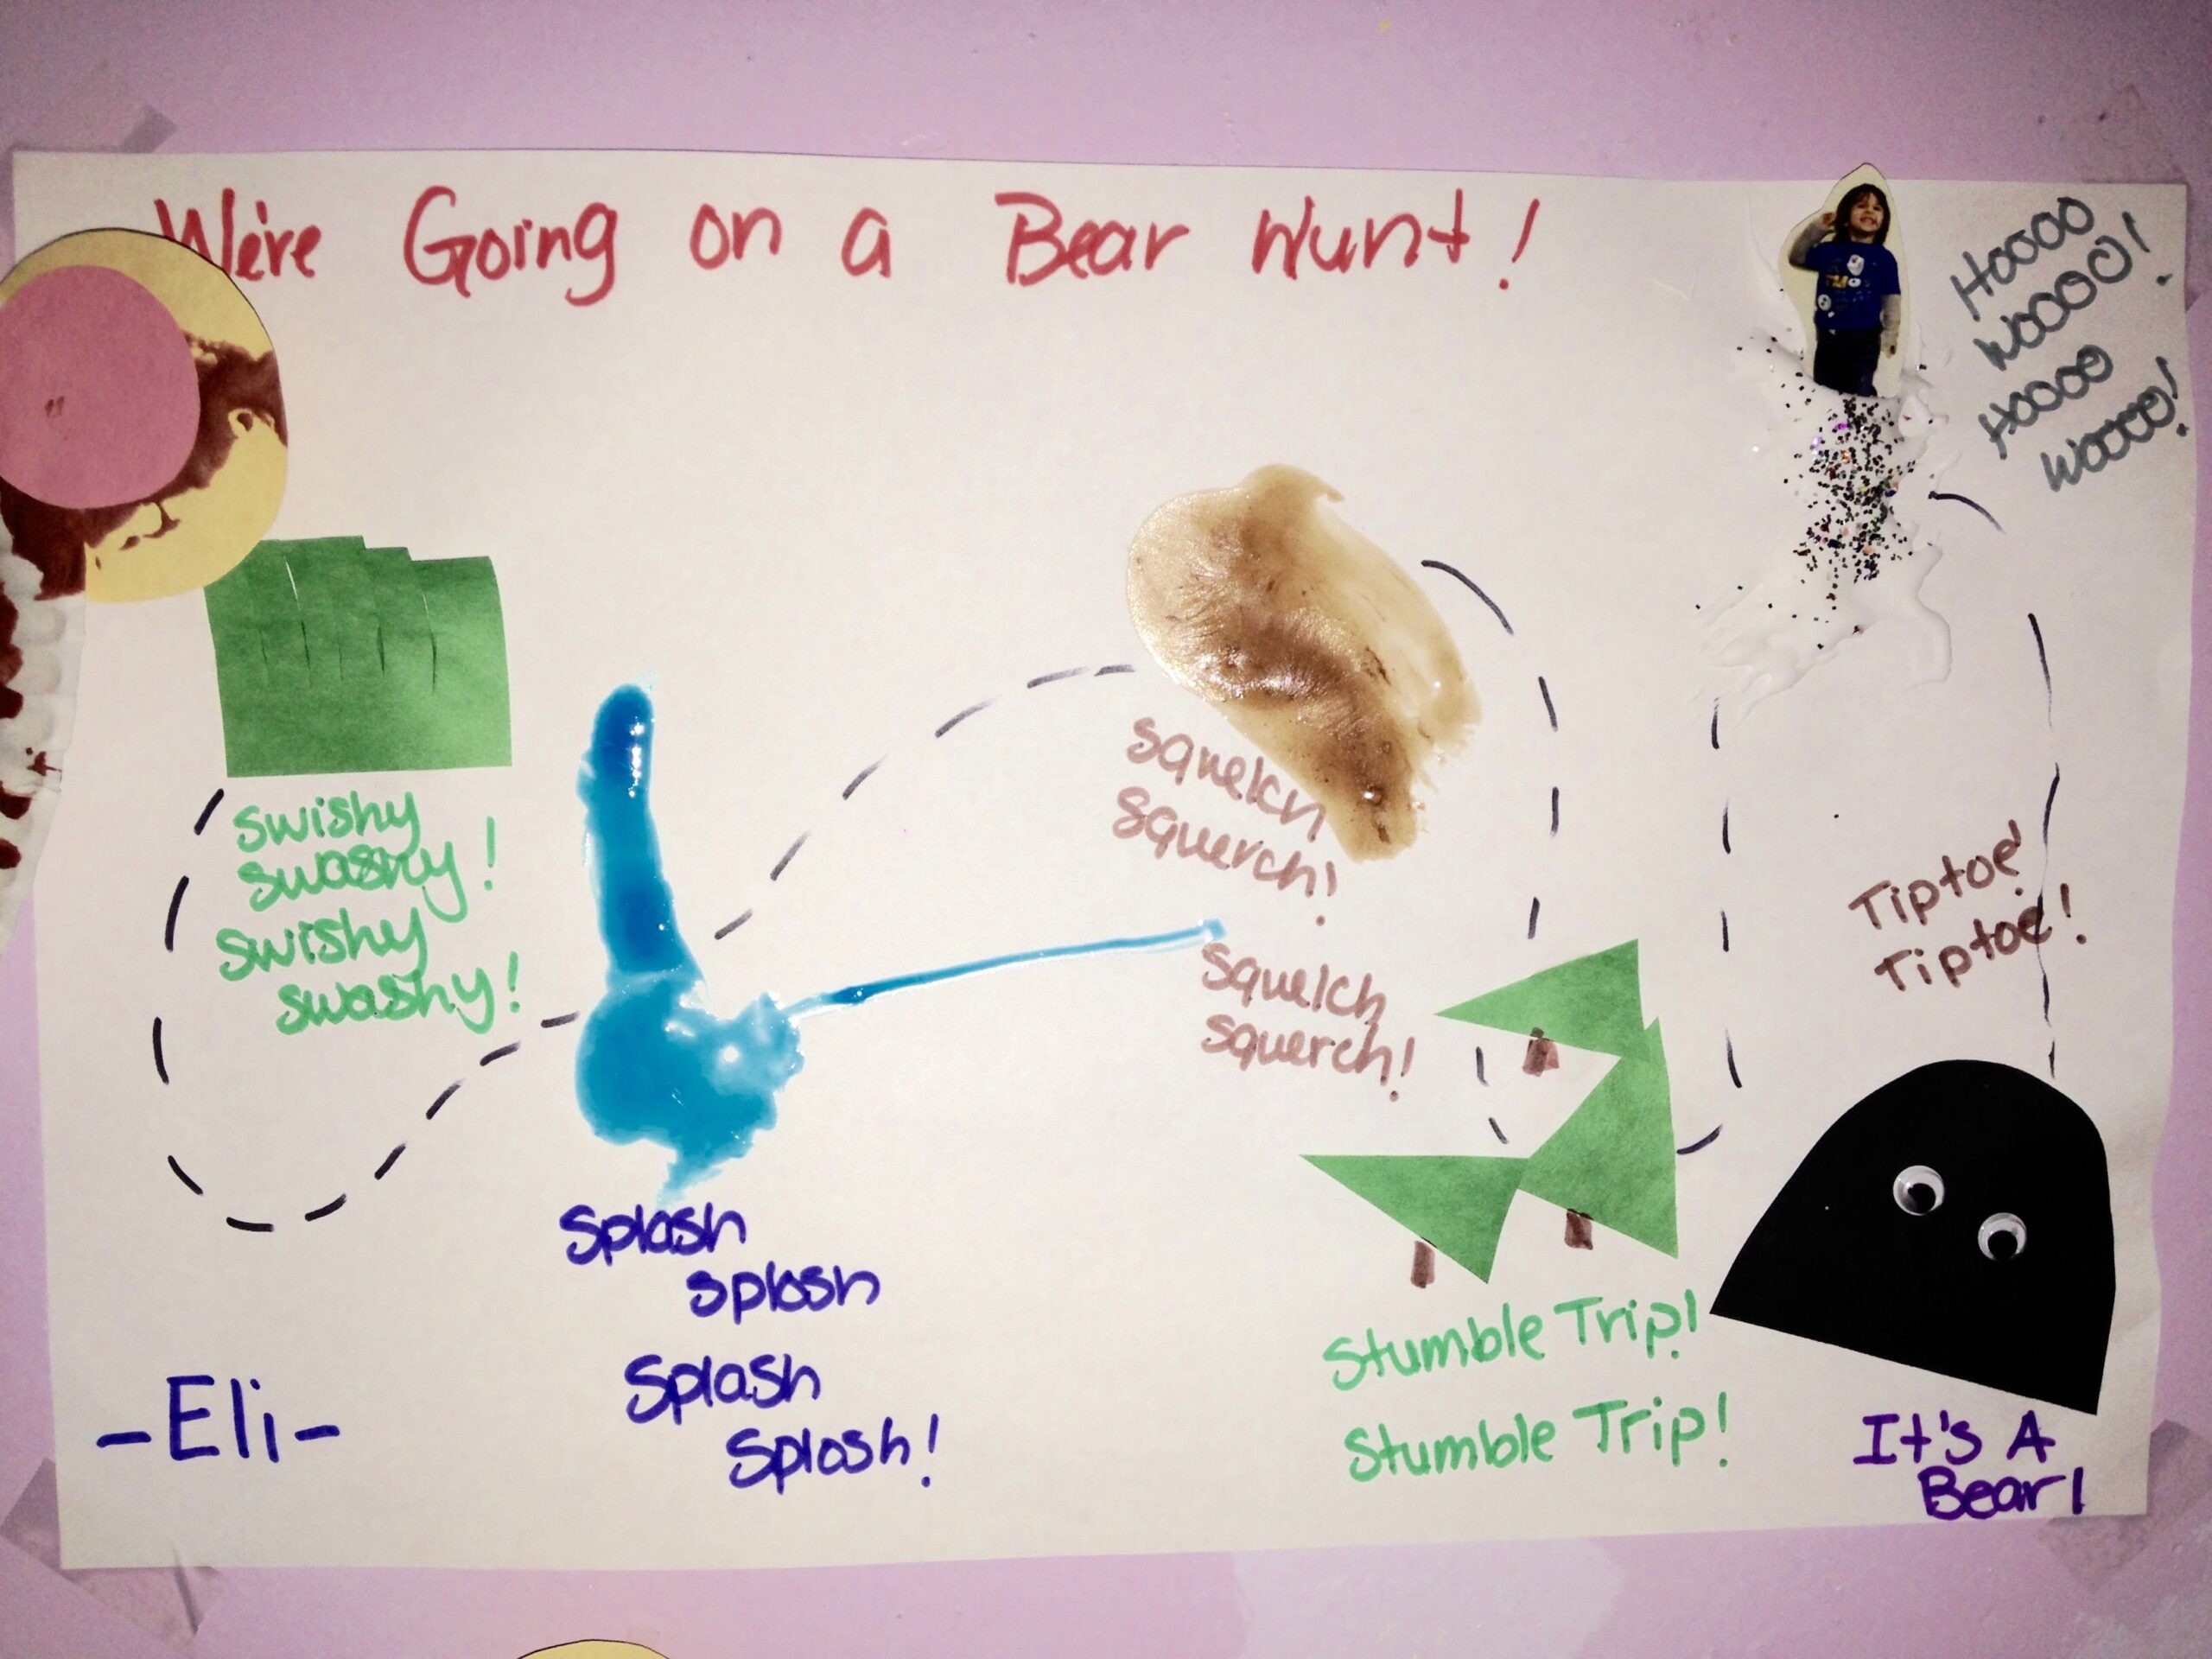 We're Going on a Bear Hunt!
Hoooo
Woooo!
Hoooo
Woooo!
swishy
swashy!
swishy
swashy!
Splash
splosh
Splash
Splosh!
squelch
squerch!
squelch
squerch!
Stumble Trip!
Stumble Trip!
Tiptoe!
Tiptoe!
It's A
Bear!
-Eli-